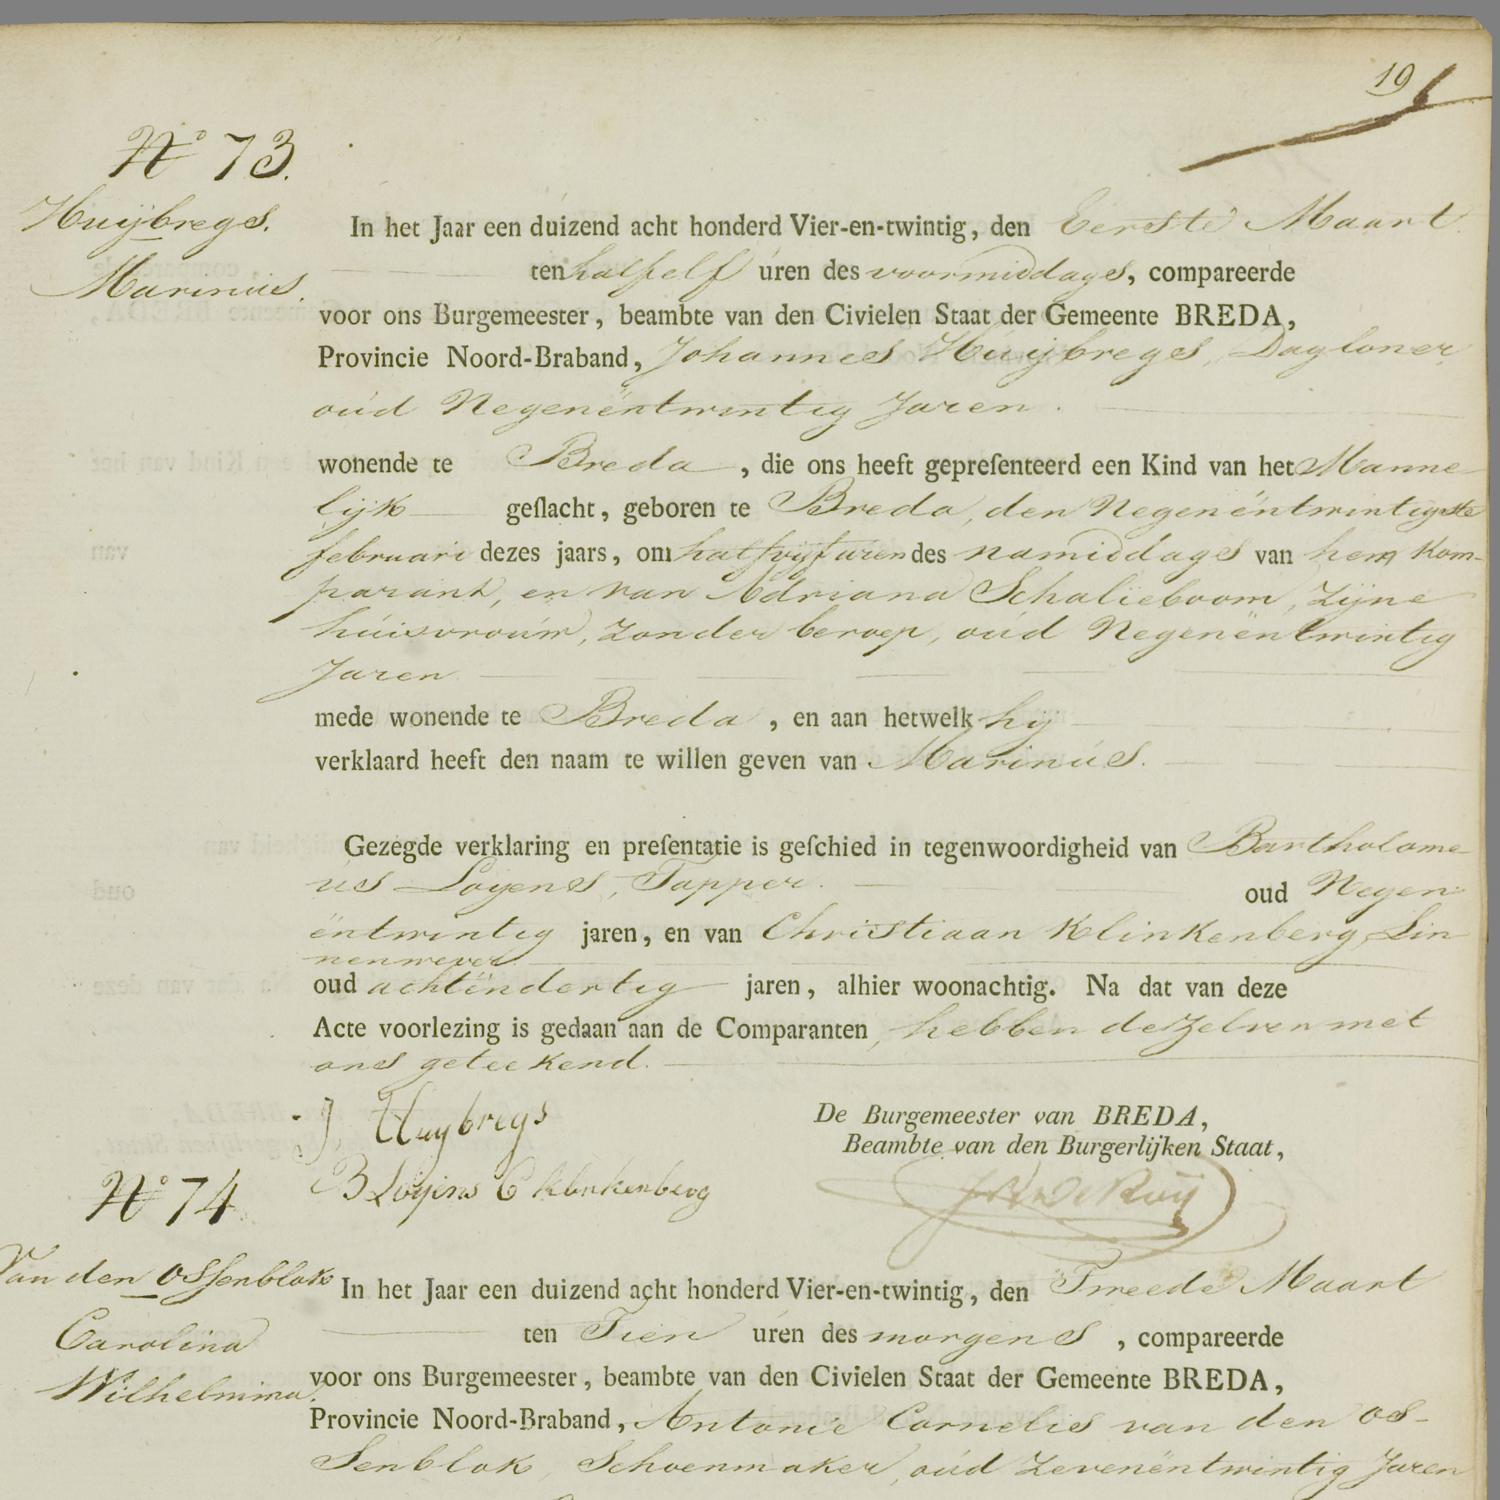 19
N° 73.
Huijbregs.
Marinus.
In het Jaar een duizend acht honderd Vier-en-twintig, den Eerste Maart
ten half elf uren des voormiddages, compareerde
voor ons Burgemeester, beambte van den Civielen Staat der Gemeente BREDA,
Provincie Noord-Braband, Johannes Huijbregs, Dagloner,
oud Negenëntwintig Jaren.
wonende te Breda, die ons heeft gepresenteerd een Kind van het Manne
lijk geslacht, geboren te Breda, den Negenëntwintigste
februari dezes jaars, om half vijf uren des namiddages van hem Kom-
parant, en van Adriana Schalieboom, Zijne
huisvrouw, Zonder beroep, oud Negenëntwintig
Jaren
mede wonende te Breda, en aan hetwelk hij
verklaard heeft den naam te willen geven van Marinus.
Gezegde verklaring en presentatie is geschied in tegenwoordigheid van Bartholome
us Loyens, Tapper. oud Negen
ëntwintig jaren, en van Christiaan Klinkenberg, Lin
nenwever
oud achtëndertig jaren, alhier woonachtig. Na dat van deze
Acte voorlezing is gedaan aan de Comparanten, hebben dezelven met
ons geteekend.
J. Huybregs
De Burgemeester van BREDA,
Beambte van den Burgerlijken Staat,
B Loyens C Klinkenberg
N° 74
Van den Ossenblok
Carolina
Wilhelmina.
In het Jaar een duizend acht honderd Vier-en-twintig, den Tweede Maart
ten Tien uren des morgens, compareerde
voor ons Burgemeester, beambte van den Civielen Staat der Gemeente BREDA,
Provincie Noord-Braband, Antonie Cornelis van den Os-
senblok, Schoenmaker, oud Zevenëntwintig Jaren